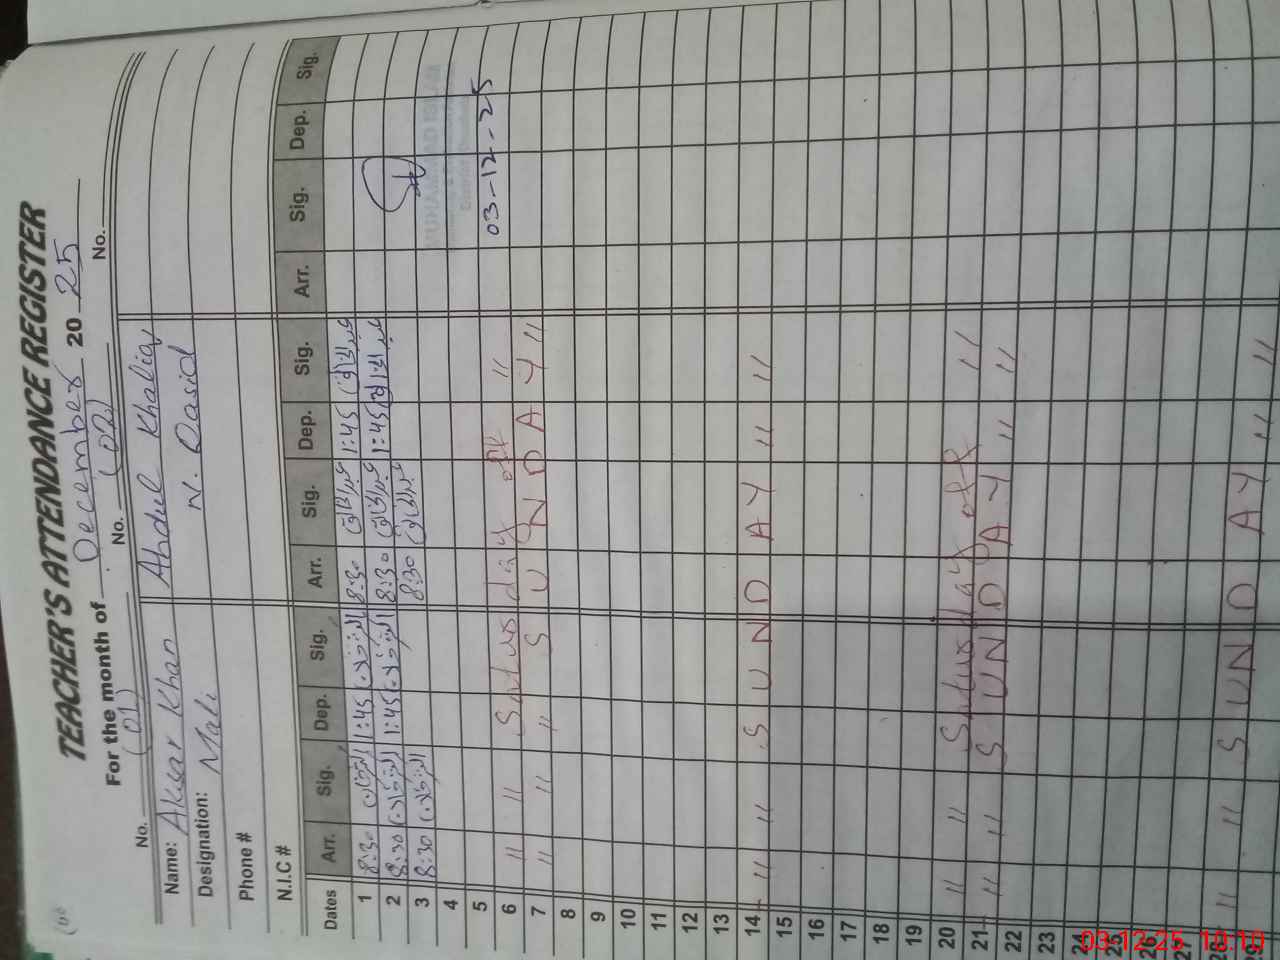 TEACHER'S ATTENDANCE REGISTER
For the month of December 20 25
No. (01) No. (02) No.
Name: Akbar Khan Abdul Khaliq
Designation: Mali N. Qasid
Phone #
N.I.C #
Dates Arr. Sig. Dep. Sig. Arr. Sig. Dep. Sig. Arr. Sig. Dep. Sig.
1 8:30 1:45 8:30 عبدالخالق 1:45 عبدالخالق
2 8:30 1:45 8:30 عبدالخالق 1:45 عبدالخالق
3 8:30 8:30 عبدالخالق
4
5 03-12-25
6 " " Saturday off "
7 " " " S U N D A Y "
8
9
10
11
12
13
14 " " S U N D A Y " "
15
16
17
18
19
20 " " Saturday off "
21 " " S U N D A Y " "
22
23
24
25
26
27
28 " " S U N D A Y " "
29
MUHAMMAD ISLAM
03-12-25 10:10